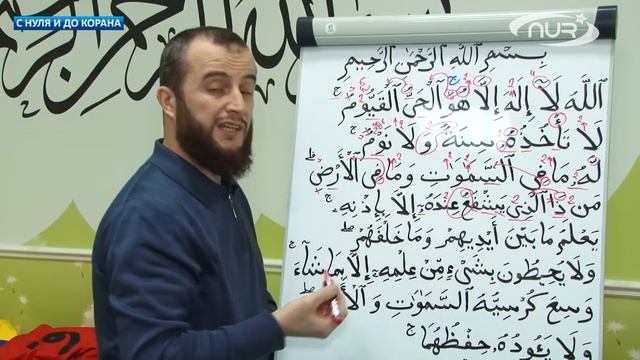 С НУЛЯ И ДО КОРАНА
NUR
بِسْمِ اللَّهِ الرَّحْمَٰنِ الرَّحِيمِ
اللَّهُ لَا إِلَٰهَ إِلَّا هُوَ الْحَيُّ الْقَيُّومُ ج
لَا تَأْخُذُهُ سِنَةٌ وَلَا نَوْمٌ ط
لَّهُ مَا فِي السَّمَٰوَٰتِ وَمَا فِي الْأَرْضِ ط
مَن ذَا الَّذِي يَشْفَعُ عِندَهُ إِلَّا بِإِذْنِهِ ج
يَعْلَمُ مَا بَيْنَ أَيْدِيهِمْ وَمَا خَلْفَهُمْ ط
وَلَا يُحِيطُونَ بِشَيْءٍ مِّنْ عِلْمِهِ إِلَّا بِمَا شَاءَ ج
وَسِعَ كُرْسِيُّهُ السَّمَٰوَٰتِ وَ
وَلَا يَئُودُهُ حِفْظُهُمَا ج